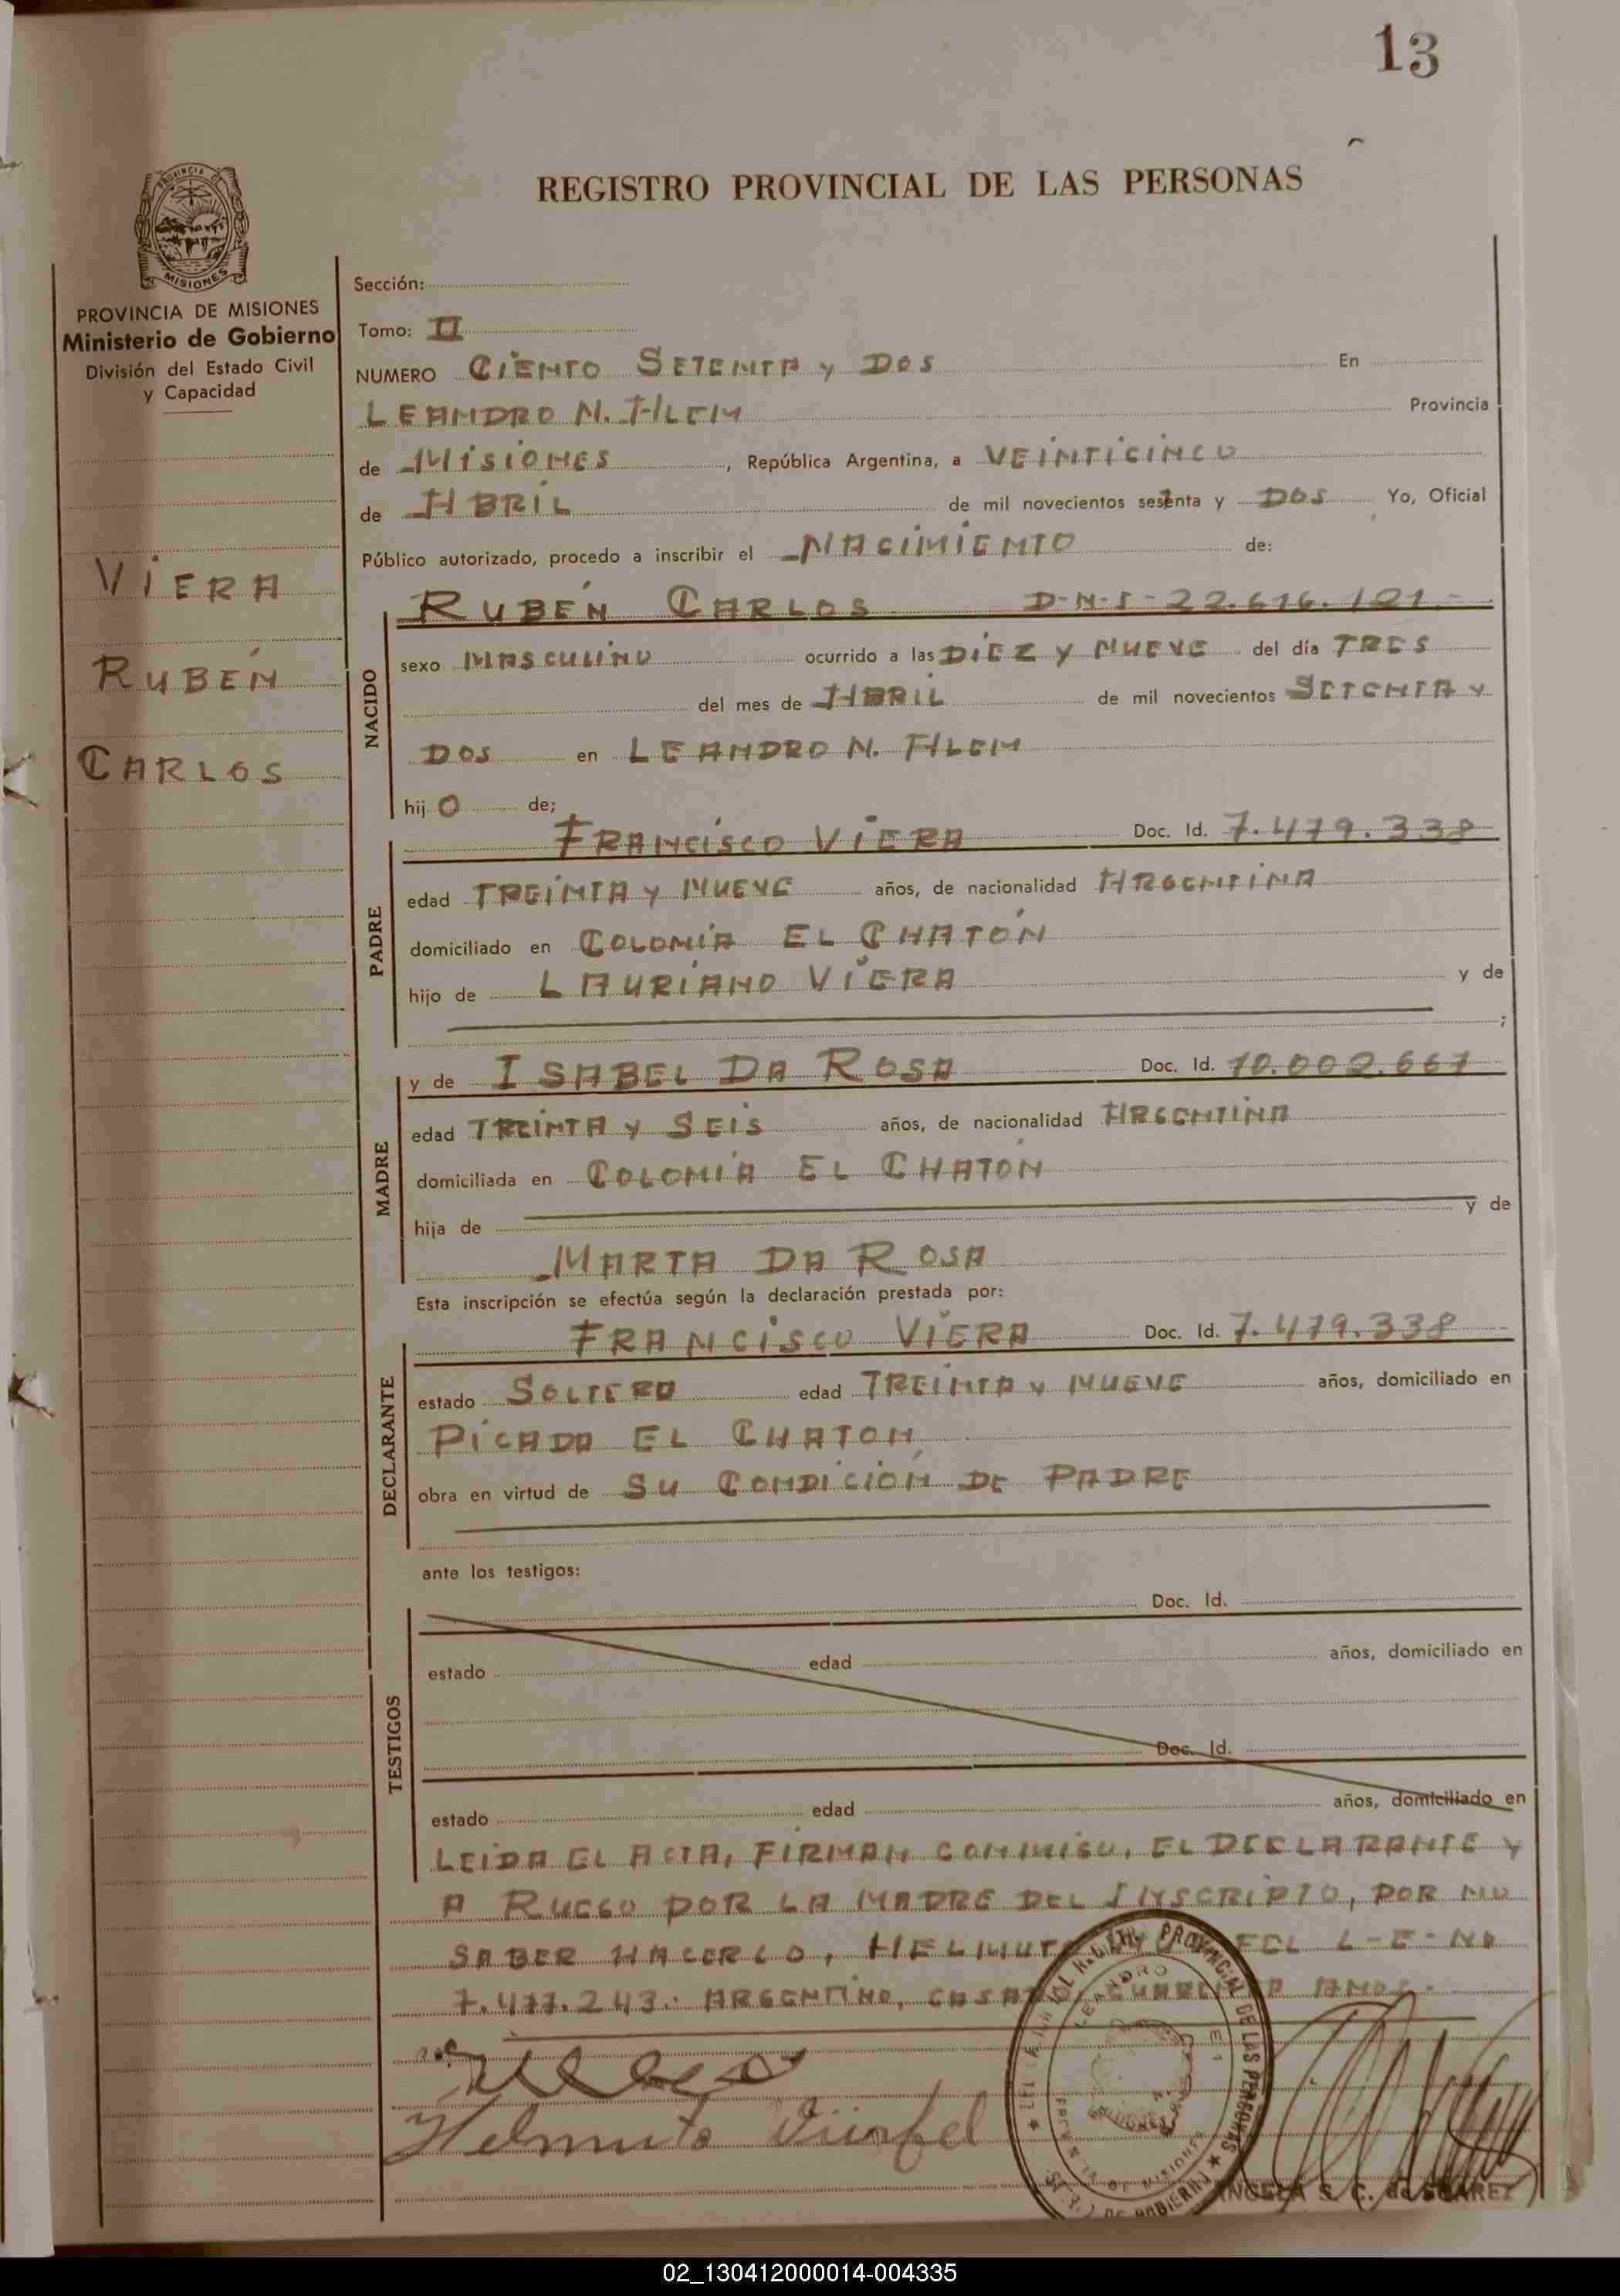 13
REGISTRO PROVINCIAL DE LAS PERSONAS
MISIONES
PROVINCIA DE MISIONES
Ministerio de Gobierno
División del Estado Civil
y Capacidad
VIERA
RUBÉN
CARLOS
Sección:
Tomo: II
NUMERO CIENTO SETENTA Y DOS En
LEANDRO N. ALEM Provincia
de MISIONES, República Argentina, a VEINTICINCO
de ABRIL de mil novecientos setenta y DOS Yo, Oficial
Público autorizado, procedo a inscribir el NACIMIENTO de:
RUBÉN CARLOS D-N-I-22.616.121.-
NACIDO
sexo MASCULINO ocurrido a las DIEZ Y NUEVE del día TRES
del mes de ABRIL de mil novecientos SETENTA Y
DOS en LEANDRO N. ALEM
hij O de;
FRANCISCO VIERA Doc. Id. 7.479.338
PADRE
edad TREINTA Y NUEVE años, de nacionalidad ARGENTINA
domiciliado en COLONIA EL CHATÓN
hijo de LAURIANO VIERA y de
;
y de ISABEL DA ROSA Doc. Id. 10.002.667
MADRE
edad TREINTA Y SEIS años, de nacionalidad ARGENTINA
domiciliada en COLONIA EL CHATÓN
hija de y de
MARTA DA ROSA
Esta inscripción se efectúa según la declaración prestada por:
FRANCISCO VIERA Doc. Id. 7.479.338
DECLARANTE
estado SOLTERO edad TREINTA Y NUEVE años, domiciliado en
PICADA EL CHATON,
obra en virtud de SU CONDICIÓN DE PADRE
ante los testigos:
Doc. Id.
TESTIGOS
estado edad años, domiciliado en
Doc. Id.
estado edad años, domiciliado en
LEIDA EL ACTA, FIRMAN CONMIGO, EL DECLARANTE Y
A RUEGO POR LA MADRE DEL INSCRIPTO, POR NO
SABER HACERLO, HELMUTO L-E-NO
7.477.243. ARGENTINO, CASADO, CUARENTA AÑOS.
Helmuto
PROVINCIAL DE LAS PERSONAS
LEANDRO
ANGELA S. C. de SUAREZ
02_130412000014-004335